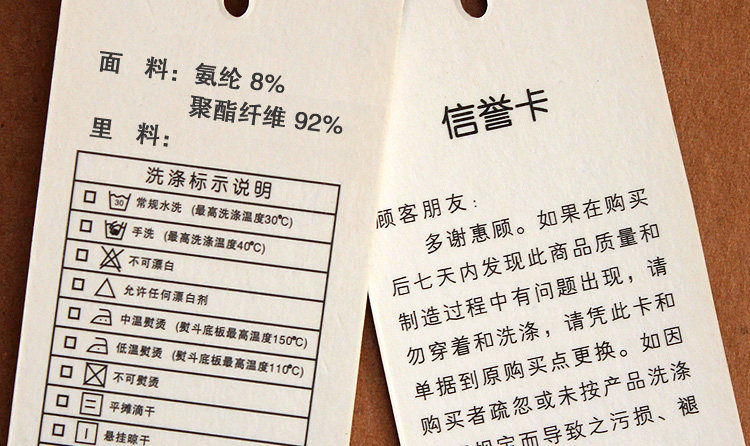 面 料：氨纶 8%
聚酯纤维 92%
里 料：
洗涤标示说明
30 常规水洗 (最高洗涤温度30℃)
手洗 (最高洗涤温度40℃)
不可漂白
允许任何漂白剂
中温熨烫 (熨斗底板最高温度150℃)
低温熨烫 (熨斗底板最高温度110℃)
不可熨烫
平摊滴干
悬挂晾干
信誉卡
顾客朋友：
多谢惠顾。如果在购买
后七天内发现此商品质量和
制造过程中有问题出现，请
勿穿着和洗涤，请凭此卡和
单据到原购买点更换。如因
购买者疏忽或未按产品洗涤
规定而导致之污损、褪